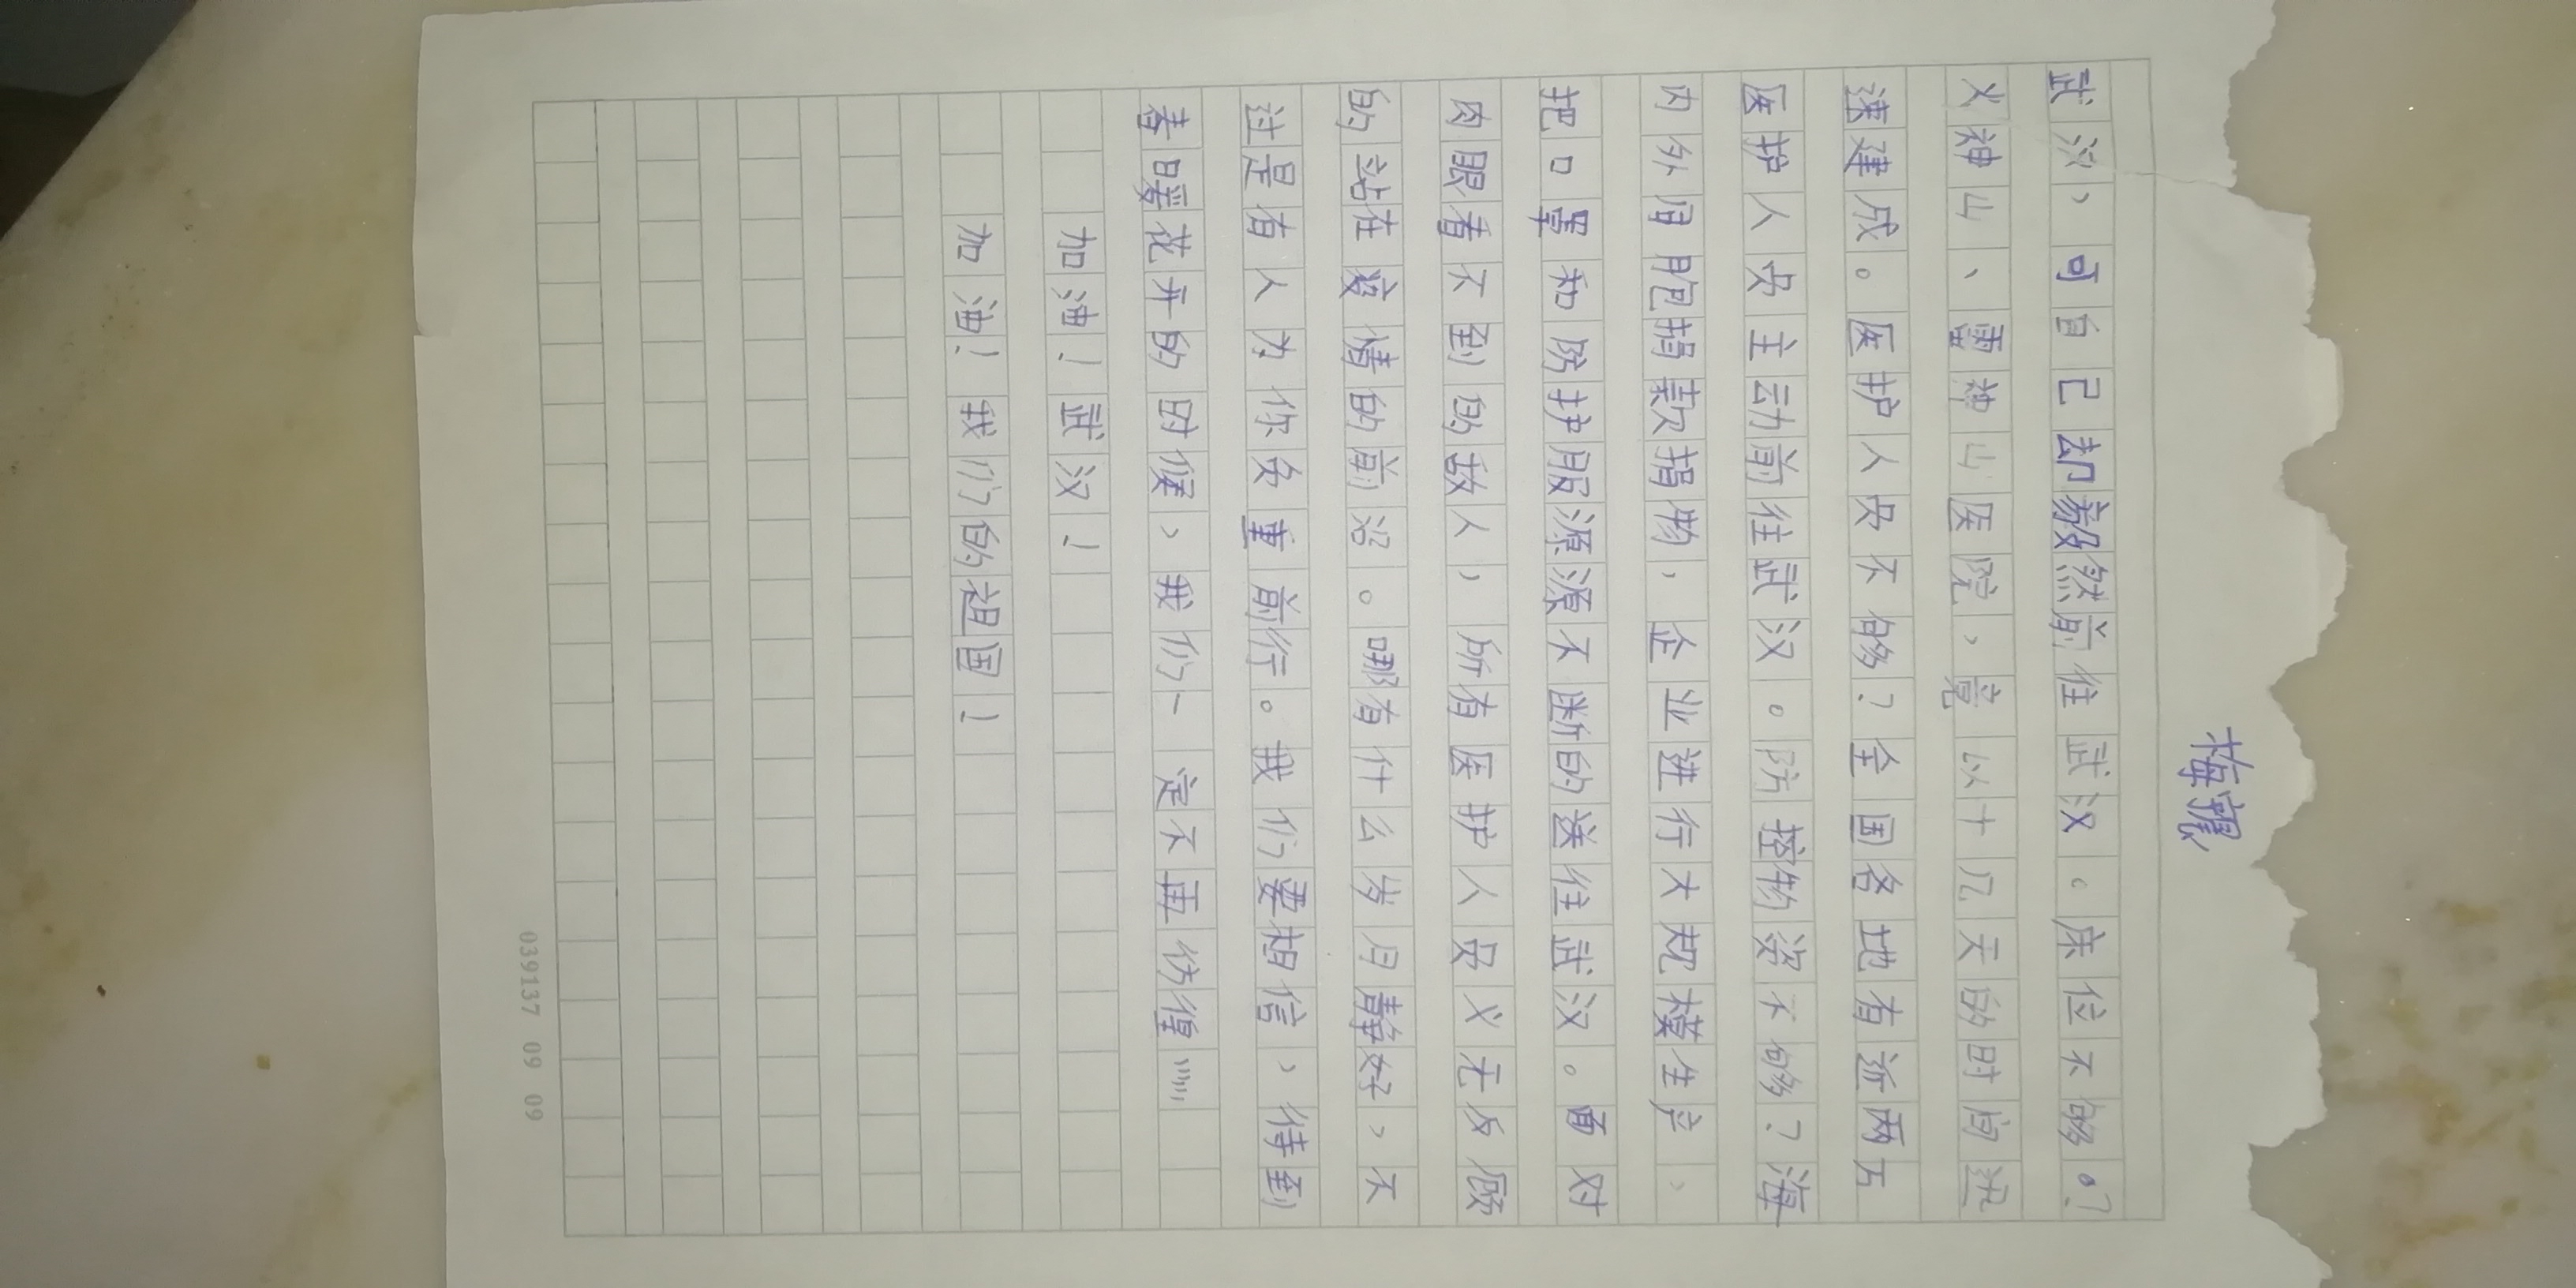 武汉，可自己却毅然前往武汉。床位不够？
火神山、雷神山医院，竟以十几天的时间迅
速建成。医护人员不够？全国各地有近两万
医护人员主动前往武汉。防控物资不够？海
内外同胞捐款捐物，企业进行大规模生产，
把口罩和防护服源源不断的送往武汉。面对
肉眼看不到的敌人，所有医护人员义无反顾
的站在疫情的前沿。哪有什么岁月静好，不
过是有人为你负重前行。我们要相信，待到
春暖花开的时候，我们一定不再彷徨……
加油！武汉！
加油！我们的祖国！
039137 09 09